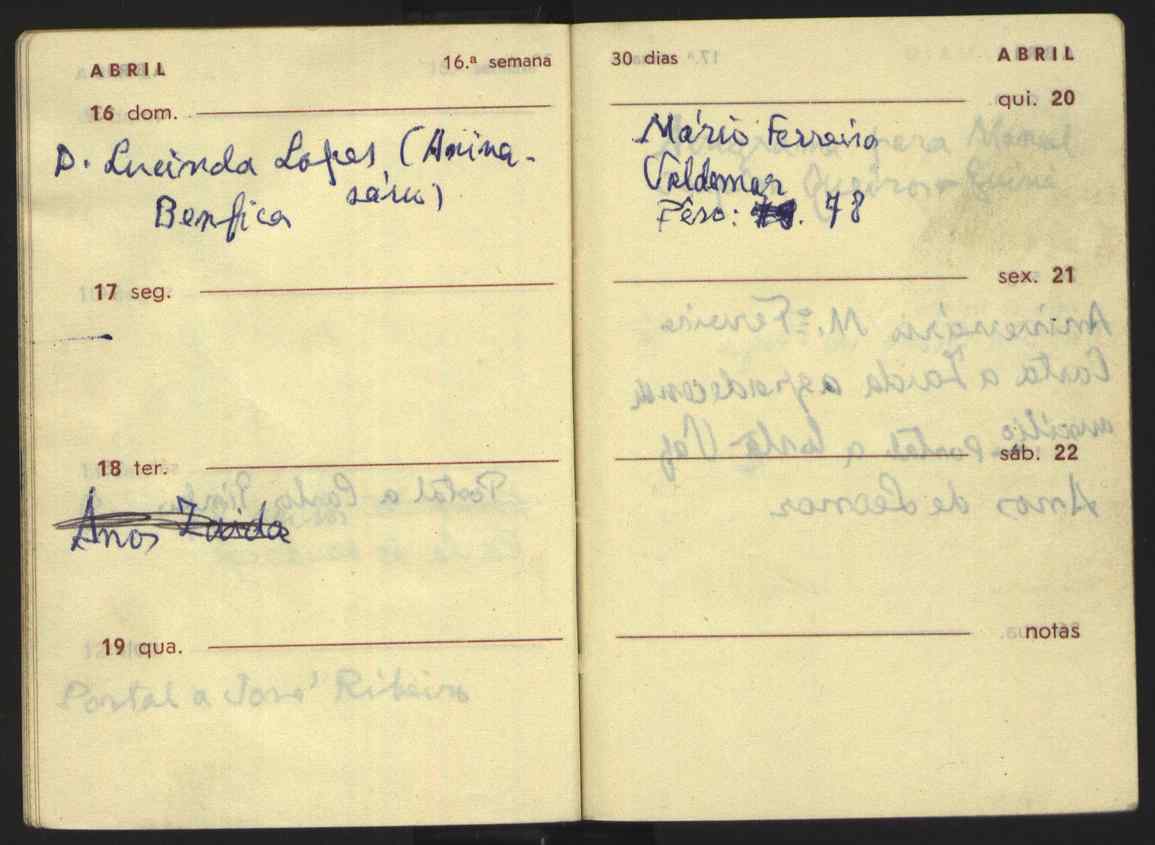 ABRIL
16.ª semana
16 dom.
D. Lucinda Lopes (Aniver-
sário)
Benfica
17 seg.
18 ter.
Anos Zaida
19 qua.
Postal a José Ribeiro
30 dias
ABRIL
qui. 20
Mário Ferreira
Valdemar
Pêso: 78
sex. 21
sáb. 22
notas